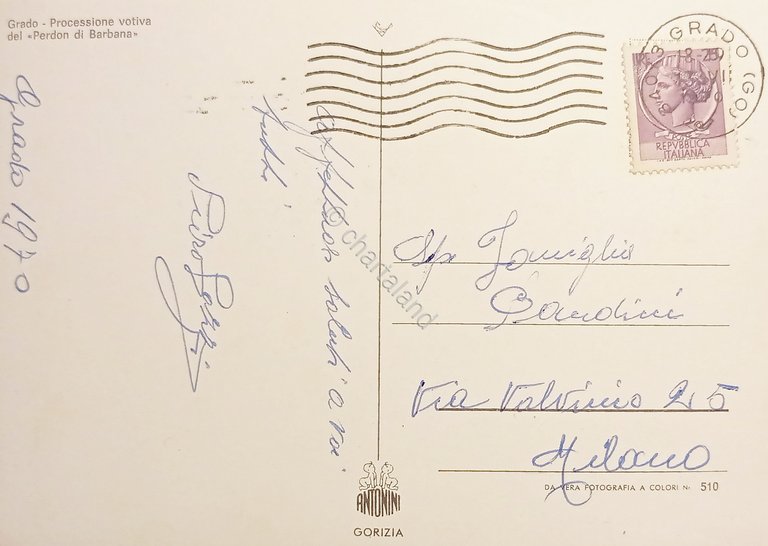 Grado - Processione votiva
del «Perdon di Barbana»
Grado 1970
saluti a voi
tutti
GRADO (GO)
18-20
REPVBBLICA
ITALIANA
© chartaland
Famiglia
Bandini
Via Valvinio 25
Milano
DA VERA FOTOGRAFIA A COLORI N. 510
ANTONINI
GORIZIA